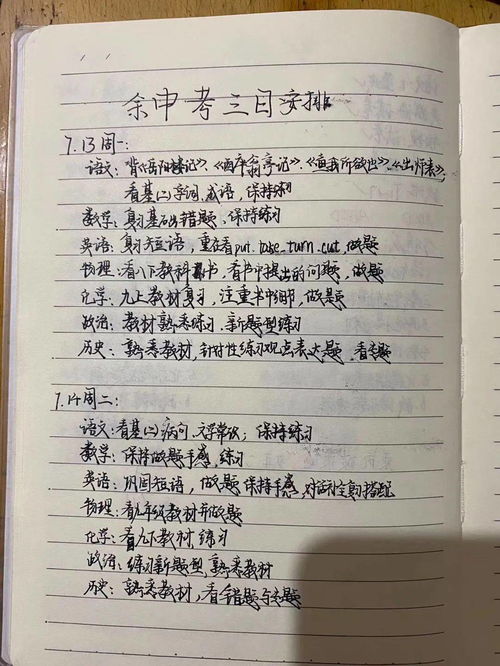 余中考三日安排
7.13周一：
语文：背《岳阳楼记》、《醉翁亭记》、《鱼我所欲也》、《出师表》，
看基(二)字词、成语，保持练习
数学：复习基础出错题、保持练习
英语：复习短语，重在看put.take.turn.cut，做题
物理：看八下教科书，看书中提出的问题，做题
化学：九上教材复习，注重书中细节，做题
政治：教材熟悉练习、新题型练习
历史：熟悉教材，针对性练习观点表大题、看专题
7.14周二：
语文：看基(二)病句、文学常识；保持练习
数学：保持做题手感，练习
英语：巩固短语，做题保持手感，对话填空
物理：看九年级教材并做题
化学：看九下教材，练习
政治：练习新题型，熟悉教材
历史：熟悉教材，看错题与专题